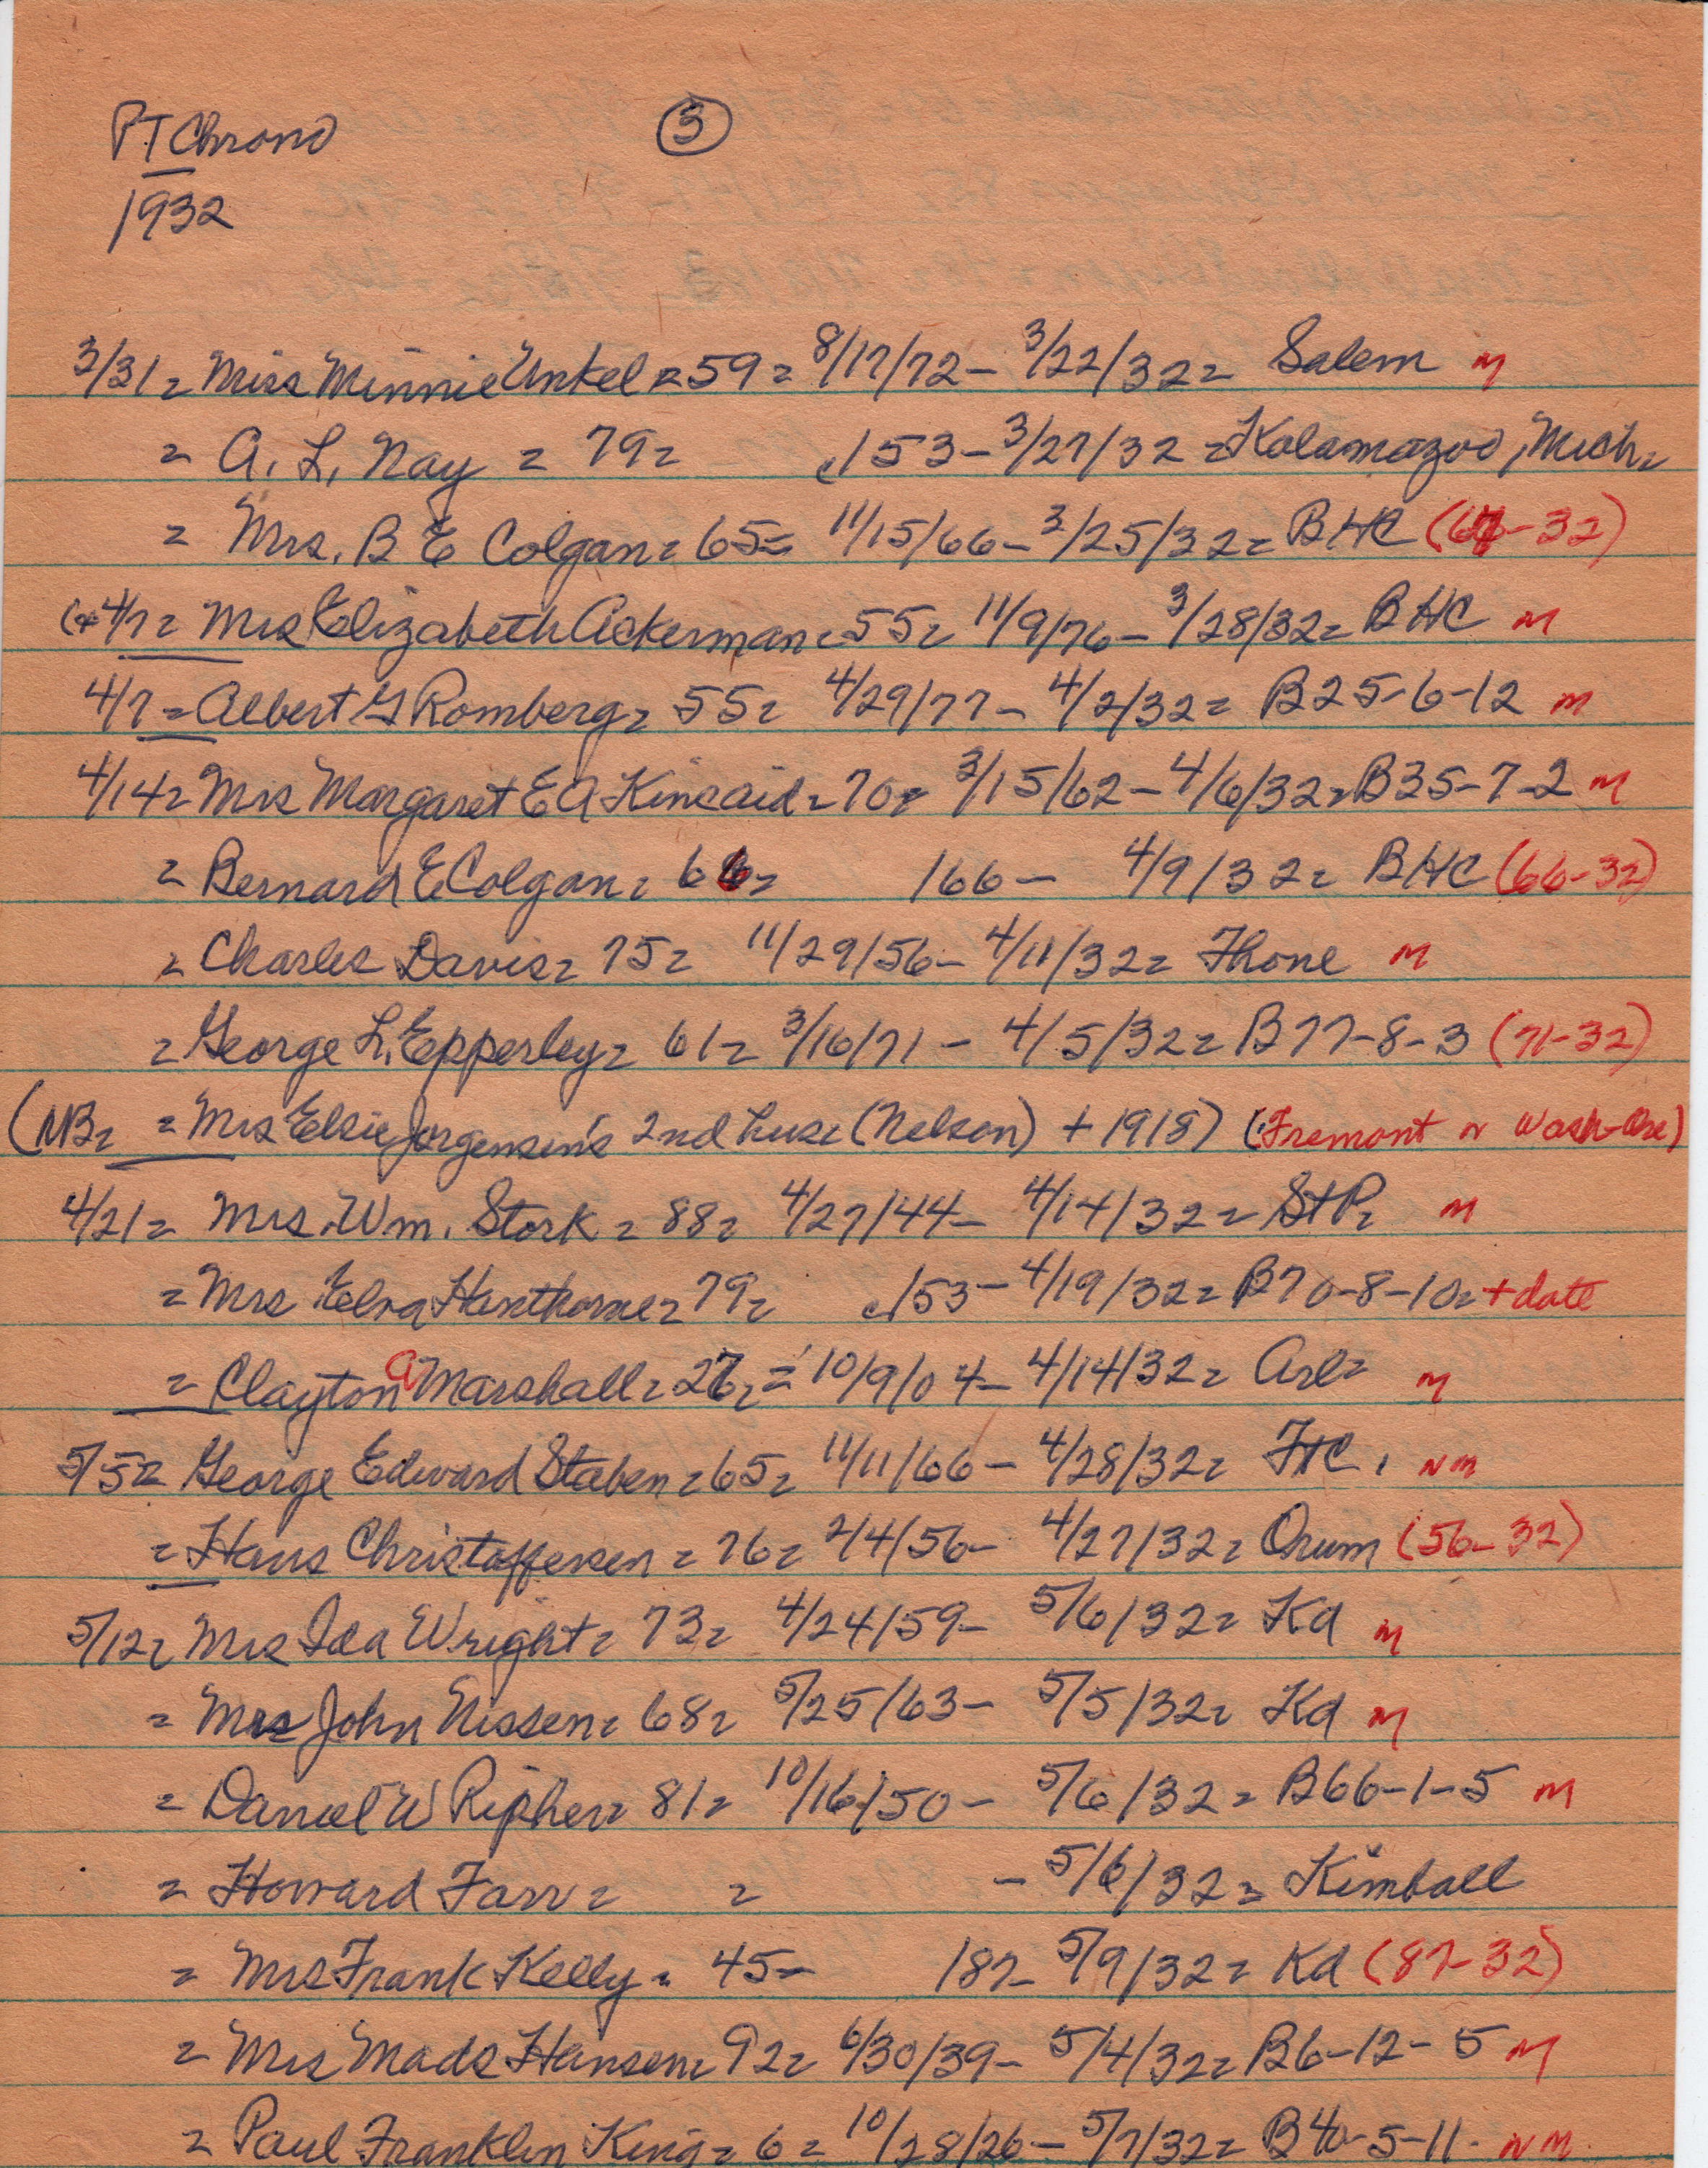 PT Chrono ③
1932
3/31 = Miss Minnie Unkel = 59 = 8/17/72 - 3/22/32 = Salem M
= A. L. Nay = 79 = c/53 - 3/27/32 = Kalamazoo, Mich =
= Mrs. B E Colgan = 65 = 11/15/66 - 3/25/32 = BHC (66-32)
(+ 4/7 = Mrs Elizabeth Ackerman = 55 = 11/9/76 - 3/28/32 = BHC M
4/7 = Albert G Romberg = 55 = 4/29/77 - 4/2/32 = B25-6-12 M
4/14 = Mrs Margaret E A Kincaid = 70 = 3/15/62 - 4/6/32 = B35-7-2 M
= Bernard E Colgan = 66 = /66 - 4/9/32 = BHC (66-32)
= Charles Davis = 75 = 11/29/56 - 4/11/32 = Fhone M
= George L. Epperley = 61 = 3/16/71 - 4/5/32 = B77-8-3 (71-32)
(NB = = Mrs Elsie Jorgensen's 2nd husc (Nelson) + 1918) (Fremont or Wash-One)
4/21 = Mrs. Wm. Stork = 88 = 4/27/44 - 4/14/32 = St P = M
= Mrs Elva Hawthorne = 79 = c/53 - 4/19/32 = B70-8-10 = + date
= Clayton A Marshall = 27 = = 10/9/04 - 4/14/32 = Arl = M
5/5 = George Edward Staben = 65 = 11/11/66 - 4/28/32 = FHC . NM
= Hans Christoffersen = 76 = 2/4/56 - 4/27/32 = Orum (56-32)
5/12 = Mrs Ida Wright = 73 = 4/24/59 - 5/6/32 = Kd M
= Mrs John Nissen = 68 = 5/25/63 - 5/5/32 = Kd M
= Daniel W Ripher = 81 = 10/16/50 - 5/6/32 = B66-1-5 M
= Howard Farr = = - 5/6/32 = Kimball
= Mrs Frank Kelly = 45 = /87 - 5/9/32 = Kd (87-32)
= Mrs Mads Hansen = 92 = 6/30/39 - 5/4/32 = B6-12-5 M
= Paul Franklin King = 6 = 10/28/26 - 5/7/32 = B40-5-11 - NM